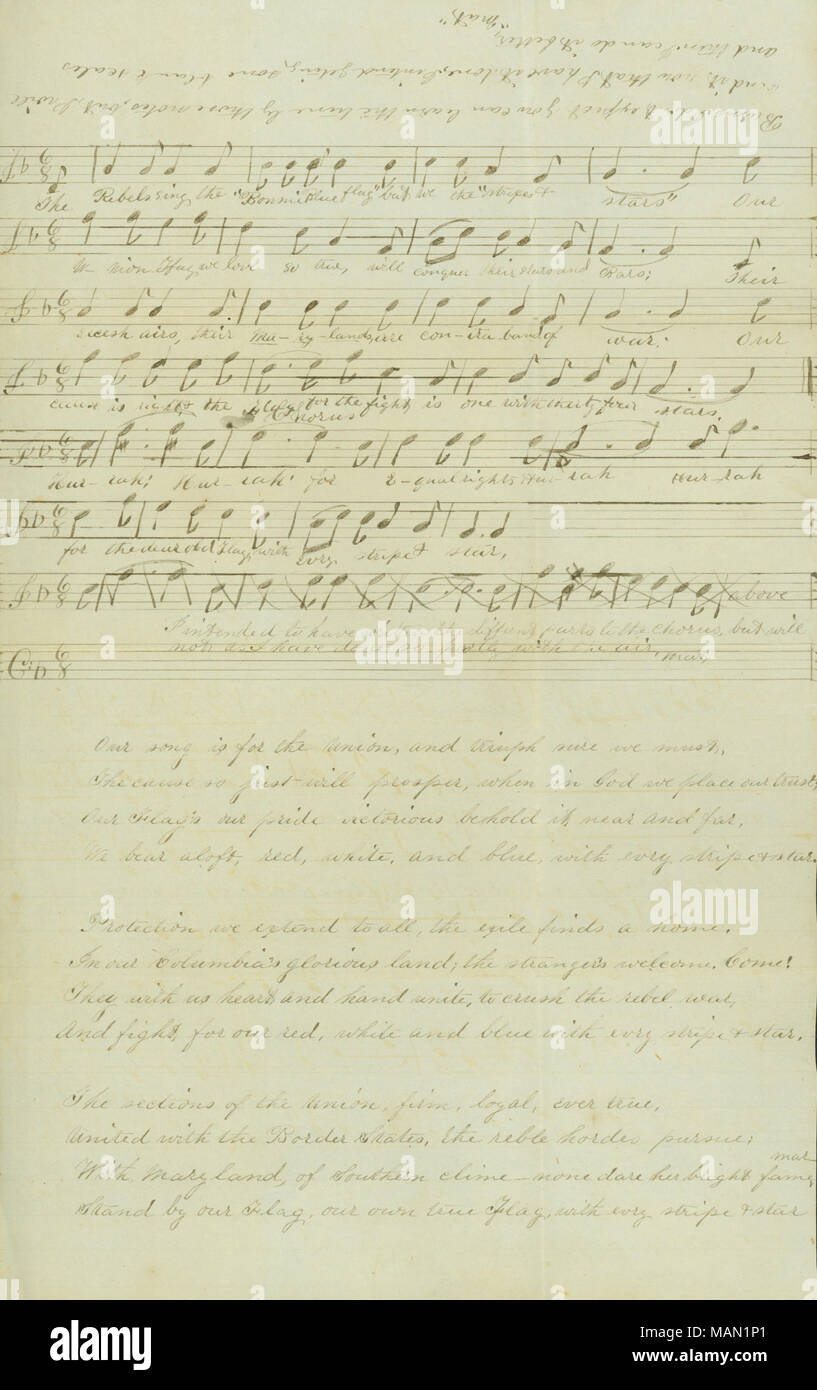 and then I can do it better, "Mat"
send it, now that I have it done, I intend geting some blank scales
I expect you can learn the tune by those notes, but I will
The Rebels sing the "Bonnie Blue flag" but we the "stripes & stars", Our
U-nion Flag, we love so true, will conquer their stars and Bars; Their
secesh airs, their Ma-ry-land, are con-tra band of war. Our
cause is right, the flag for the fight, is one with thirty four stars.
Chorus
Hur-rah! Hur-rah! for E-qual rights, Hur-rah Hur-rah
for the dear old Flag, with evry stripe & star,
above
I intended to have the diffent parts to the chorus, but will
not, as I have with the air, Mat
Our song is for the Union, and triuph sure we must,
The cause so just will prosper, when in God we place our trust;
Our Flag's our pride victorious behold it, near and far,
We bear aloft, red, white, and blue, with evry stripe & star.
Protection we extend to all, the exile finds a home,
In our Columbia's glorious land; the stranger's welcome. Come!
They with us heart and hand unite, to crush the rebel war,
And fight, for our red, white and blue with evry stripe & star.
The sections of the Union, firm, loyal, ever true,
United with the Border States, the reble hordes pursue;
mar
With Maryland, of Southern clime - none dare her bright fame,
Stand by our Flag, our own true Flag, with evry stripe & star
alamy
alamy
alamy
alamy
alamy
Image ID: MAN1P1
www.alamy.com